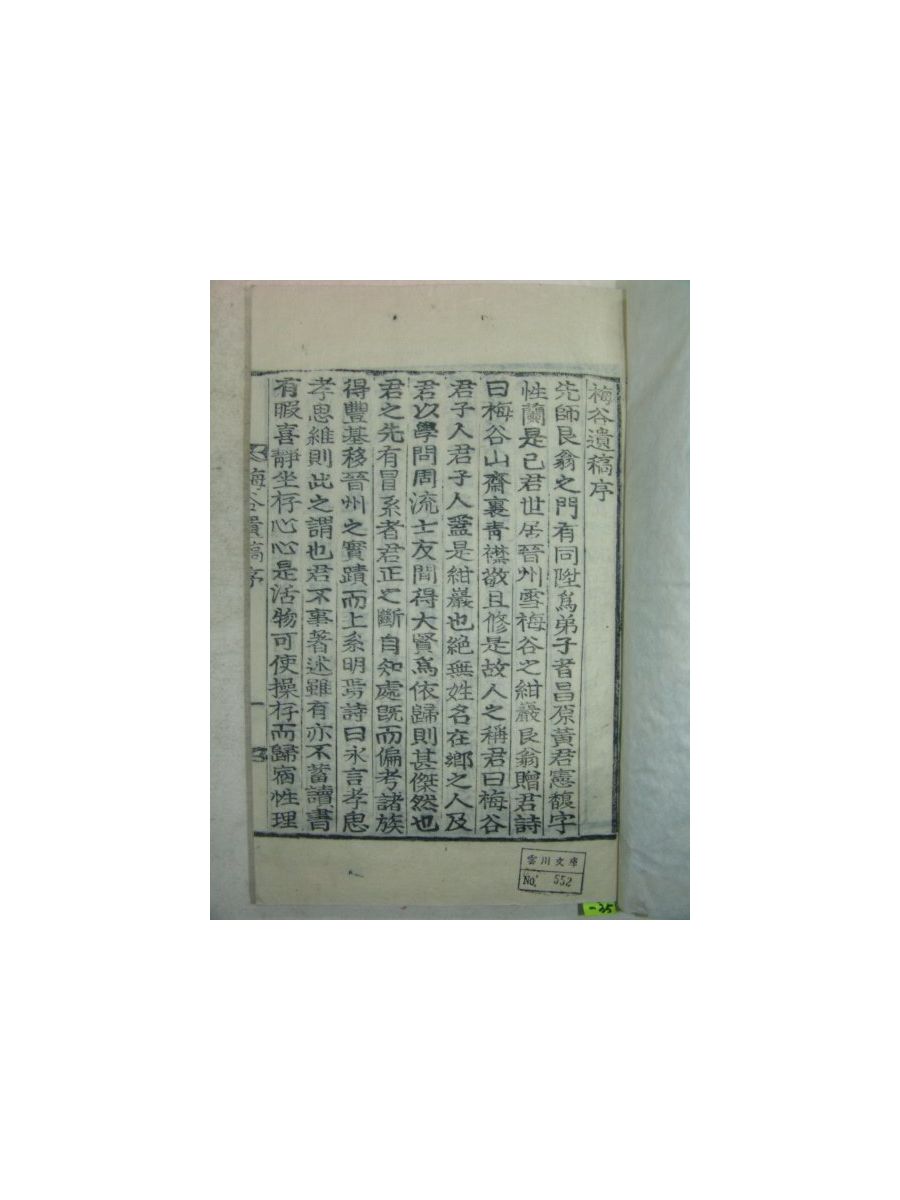 梅谷遺稿序
先師艮翁之門有同陞爲弟子者昌原黃君憲馥字
性蘭是已君世居晉州雪梅谷之紺巖艮翁贈君詩
曰梅谷山齋裏靑襟敬且修是故人之稱君曰梅谷
君子人君子人蓋是紺巖也絶無姓名在鄕之人及
君以學問周流士友間得大賢爲依歸則甚傑然也
君之先有冒系者君正之斷自知處旣而偏考諸族
得豐基移晉州之實蹟而上系明焉詩曰永言孝思
孝思維則此之謂也君不事著述雖有亦不蓄讀書
有暇喜靜坐存心心是活物可使操存而歸宿性理
梅谷遺稿序
一
雲川文庫
No. 552
-35